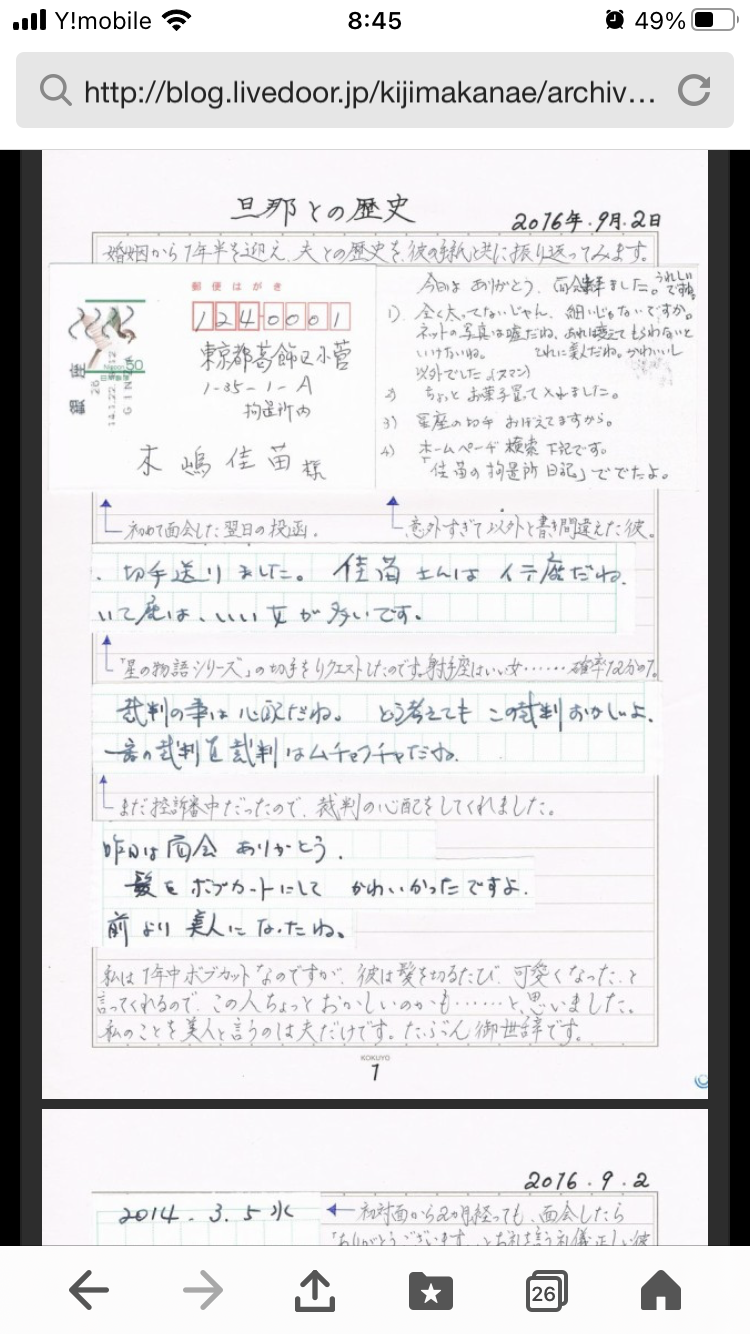 Y!mobile
8:45
49%
http://blog.livedoor.jp/kijimakanae/archiv...
旦那との歴史
2016年.9月.2日
婚姻から1年半を迎え、夫との歴史を、彼の手紙と共に振り返ってみます。
郵便はがき
1240001
東京都葛飾区小菅
1-35-1-A
拘置所内
木嶋佳苗様
銀座
GINZA
Nippon 50
今日は ありがとう、面会来ました。うれしいです
1). 全く太ってないじゃん、細いじゃないですか。
ネットの写真は嘘だね、あれは変えてもらわないと
いけないね。 とれに美人だね。かわいいし
以外でした (スマン)
2) ちょっと お菓子買って入れました。
3) 星座の切手 おぼえてますから。
4) ホームページ 検索 下記です。
「佳苗の拘置所日記」ででたよ。
初めて面会した翌日の投函。
意外すぎて以外と書き間違えた彼。
切手送りました。 佳苗さんは イテ座だね.
いて座は、いい女が多いです。
「星の物語シリーズ」の切手をリクエストしたのです。射手座はいい女……確率12分の1。
裁判の事は心配だね。 どう考えても この裁判おかしいよ.
一審の裁判 裁判はムチャクチャだね.
まだ控訴審中だったので、裁判の心配をしてくれました。
昨日は面会 ありがとう.
髪をボブカートにして かわいかったですよ.
前より 美人になったね。
私は1年中ボブカットなのですが、彼は髪を切るたび、可愛くなった、と
言ってくれるので、この人ちょっとおかしいのかも……と、思いました。
私のことを美人と言うのは夫だけです。たぶん御世辞です。
KOKUYO
1
2016.9.2
2014.3.5水
初対面から2ヵ月経っても、面会したら
「ありがとうございます」とお礼を言う礼儀正しい彼
26